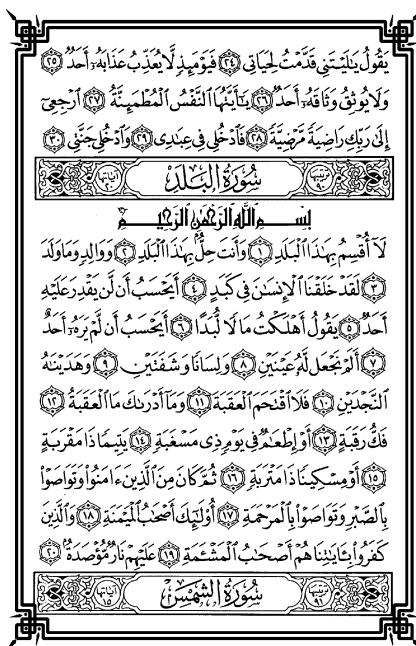 يَقُولُ يَٰلَيْتَنِى قَدَّمْتُ لِحَيَاتِى ٢٤ فَيَوْمَئِذٍ لَّا يُعَذِّبُ عَذَابَهُۥٓ أَحَدٌ ٢٥
وَلَا يُوثِقُ وَثَاقَهُۥٓ أَحَدٌ ٢٦ يَٰٓأَيَّتُهَا ٱلنَّفْسُ ٱلْمُطْمَئِنَّةُ ٢٧ ٱرْجِعِىٓ
إِلَىٰ رَبِّكِ رَاضِيَةً مَّرْضِيَّةً ٢٨ فَٱدْخُلِى فِى عِبَٰدِى ٢٩ وَٱدْخُلِى جَنَّتِى ٣٠
ترتيبها ٩٠ سُورَةُ ٱلْبَلَدِ آياتها ٢٠
بِسْمِ ٱللَّهِ ٱلرَّحْمَٰنِ ٱلرَّحِيمِ
لَآ أُقْسِمُ بِهَٰذَا ٱلْبَلَدِ ١ وَأَنتَ حِلٌّۢ بِهَٰذَا ٱلْبَلَدِ ٢ وَوَالِدٍ وَمَا وَلَدَ
٣ لَقَدْ خَلَقْنَا ٱلْإِنسَٰنَ فِى كَبَدٍ ٤ أَيَحْسَبُ أَن لَّن يَقْدِرَ عَلَيْهِ
أَحَدٌ ٥ يَقُولُ أَهْلَكْتُ مَالًا لُّبَدًا ٦ أَيَحْسَبُ أَن لَّمْ يَرَهُۥٓ أَحَدٌ
٧ أَلَمْ نَجْعَل لَّهُۥ عَيْنَيْنِ ٨ وَلِسَانًا وَشَفَتَيْنِ ٩ وَهَدَيْنَٰهُ
ٱلنَّجْدَيْنِ ١٠ فَلَا ٱقْتَحَمَ ٱلْعَقَبَةَ ١١ وَمَآ أَدْرَىٰكَ مَا ٱلْعَقَبَةُ ١٢
فَكُّ رَقَبَةٍ ١٣ أَوْ إِطْعَٰمٌ فِى يَوْمٍ ذِى مَسْغَبَةٍ ١٤ يَتِيمًا ذَا مَقْرَبَةٍ
١٥ أَوْ مِسْكِينًا ذَا مَتْرَبَةٍ ١٦ ثُمَّ كَانَ مِنَ ٱلَّذِينَ ءَامَنُوا۟ وَتَوَاصَوْا۟
بِٱلصَّبْرِ وَتَوَاصَوْا۟ بِٱلْمَرْحَمَةِ ١٧ أُو۟لَٰٓئِكَ أَصْحَٰبُ ٱلْمَيْمَنَةِ ١٨ وَٱلَّذِينَ
كَفَرُوا۟ بِـَٔايَٰتِنَا هُمْ أَصْحَٰبُ ٱلْمَشْـَٔمَةِ ١٩ عَلَيْهِمْ نَارٌ مُّؤْصَدَةٌۢ ٢٠
ترتيبها ٩١ سُورَةُ ٱلشَّمْسِ آياتها ١٥